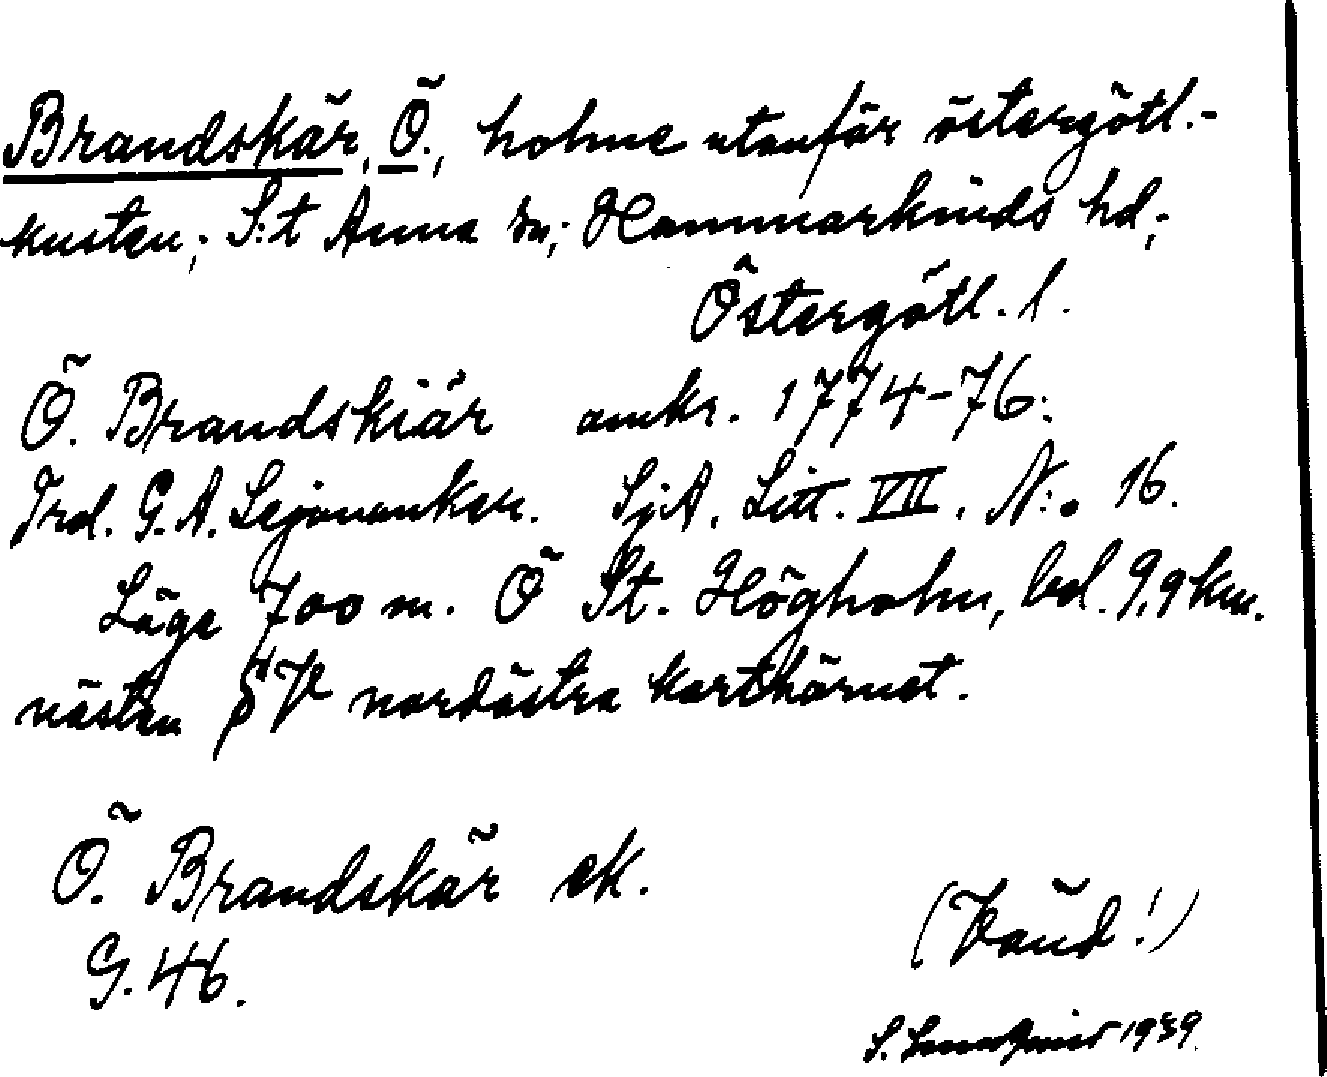 Brandskär, Ö., holme utanför östergötl.-
kusten; S:t Anna sn; Hammarkinds hd;
Östergötl. l.
Ö. Brandskiär omkr. 1774-76:
Trol. G. A. Lejonanker. SjA. Litt. VII. N:o 16.
Läge 700 m. Ö St. Högholm, bel. 9,9 km.
nästan SV nordöstra karthörnet.
Ö. Brandskär ek.
G. 46.
(Vänd!)
S. 1939.